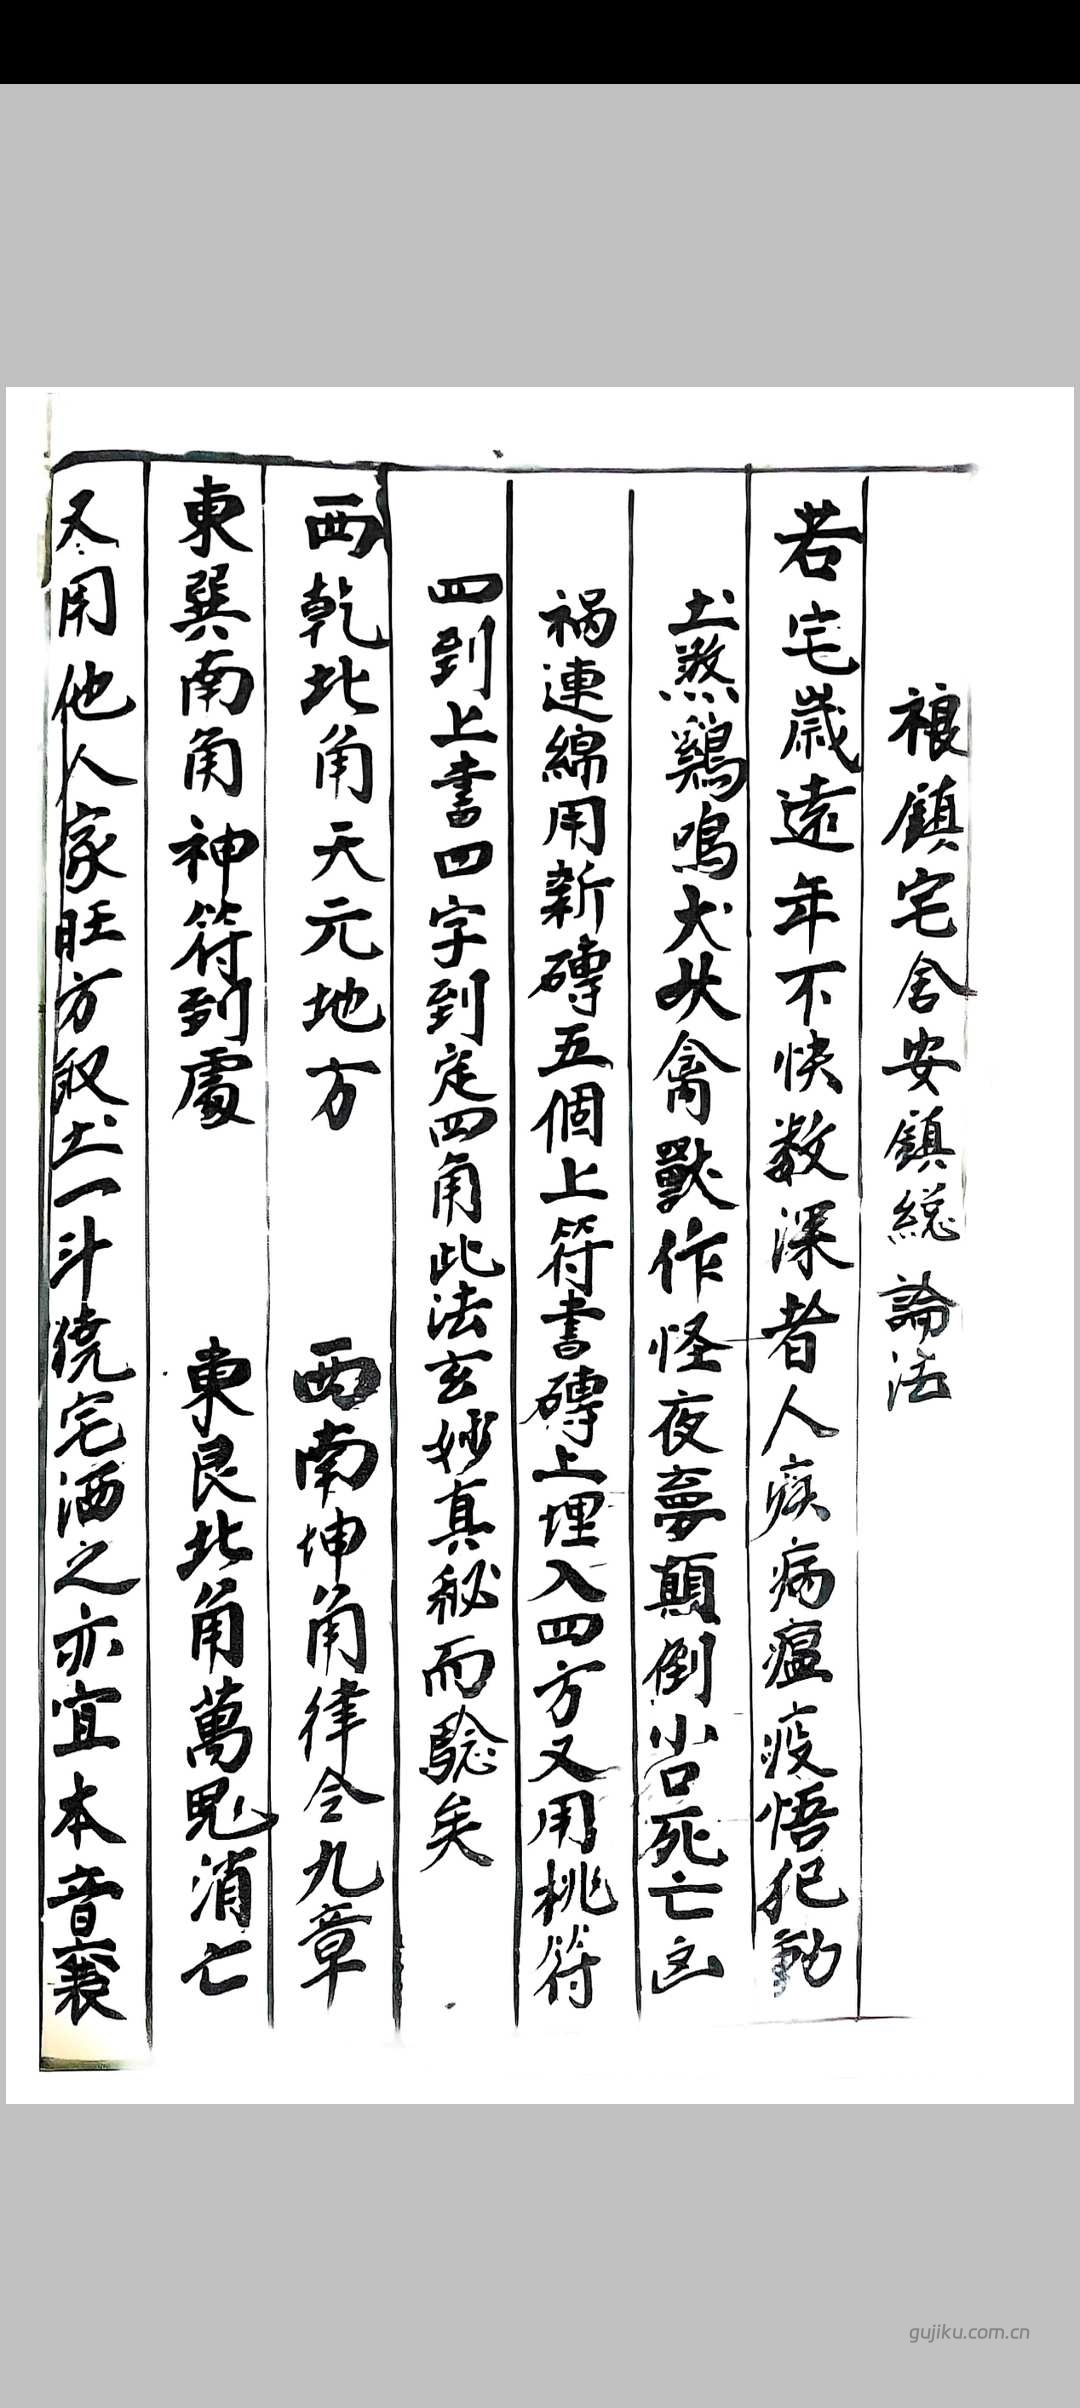 禳鎮宅舍安鎮総論法
若宅歲遠年不快数深者人疾病瘟疫悟犯動
土煞鷄鳴犬吠禽獸作怪夜夢顛倒小口死亡凶
禍連綿用新磚五個上符書磚上埋入四方又用桃符
四到上書四字到定四角此法玄妙真秘而驗矣
西乾北角天元地方 西南坤角律令九章
東巽南角神符到處 東艮北角萬鬼消亡
又用他人家旺方取土一斗繞宅洒之亦宜本音
gujiku.com.cn